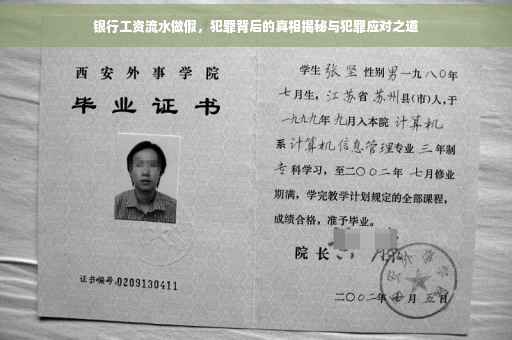 银行工资流水做假，犯罪背后的真相揭秘与犯罪应对之道
西安外事学院
毕业证书
证书编号:0209130411
学生 张坚 性别 男 一九八〇年
七月生，江苏省苏州县(市)人,于
一九九九年九月入本院 计算机
系 计算机信息管理专业 三年制
专科学习，至二〇〇二年 七月修业
期满，学完教学计划规定的全部课程，
成绩合格，准予毕业。
院长
二〇〇二年 月五日